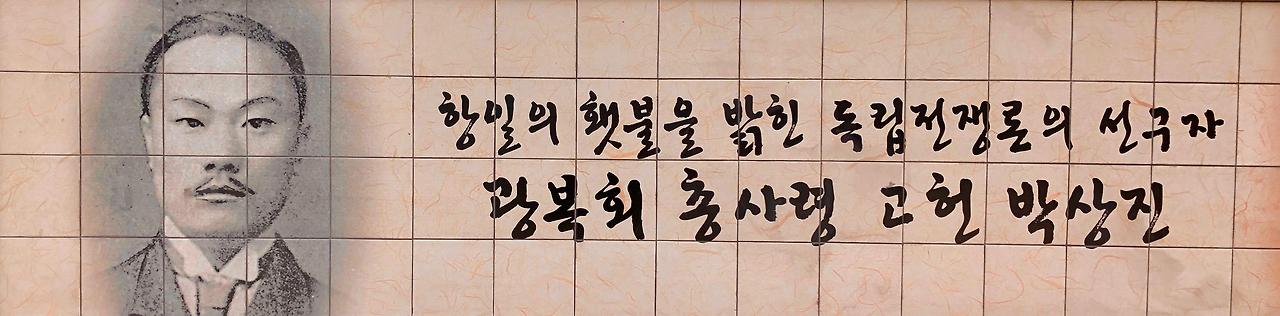 항일의 횃불을 밝힌 독립전쟁론의 선구자
광복회 총사령 고헌 박상진